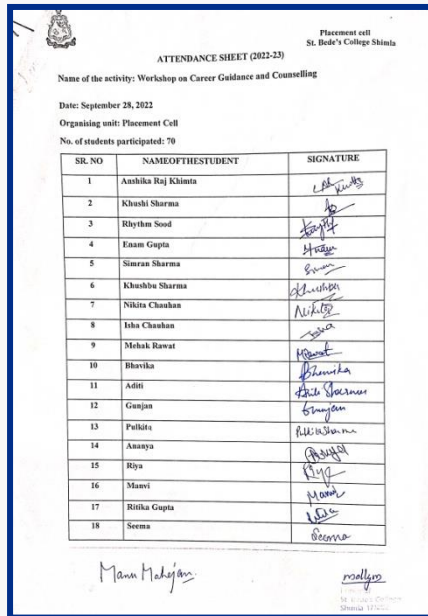 Placement cell
St. Bede's College Shimla
ATTENDANCE SHEET (2022-23)
Name of the activity: Workshop on Career Guidance and Counselling
Date: September 28, 2022
Organising unit: Placement Cell
No. of students participated: 70
SR. NO NAMEOFTHESTUDENT SIGNATURE
1 Anshika Raj Khimta
2 Khushi Sharma
3 Rhythm Sood
4 Enam Gupta
5 Simran Sharma
6 Khushbu Sharma Khushbu
7 Nikita Chauhan Nikita
8 Isha Chauhan Isha
9 Mehak Rawat MRawat
10 Bhavika Bhavika
11 Aditi Aditi Sharma
12 Gunjan Gunjan
13 Pulkita Pulkita Sharma
14 Ananya
15 Riya Riya
16 Manvi Manvi
17 Ritika Gupta
18 Seema Seema
Manu Mahajan
St. Bede's College
Shimla